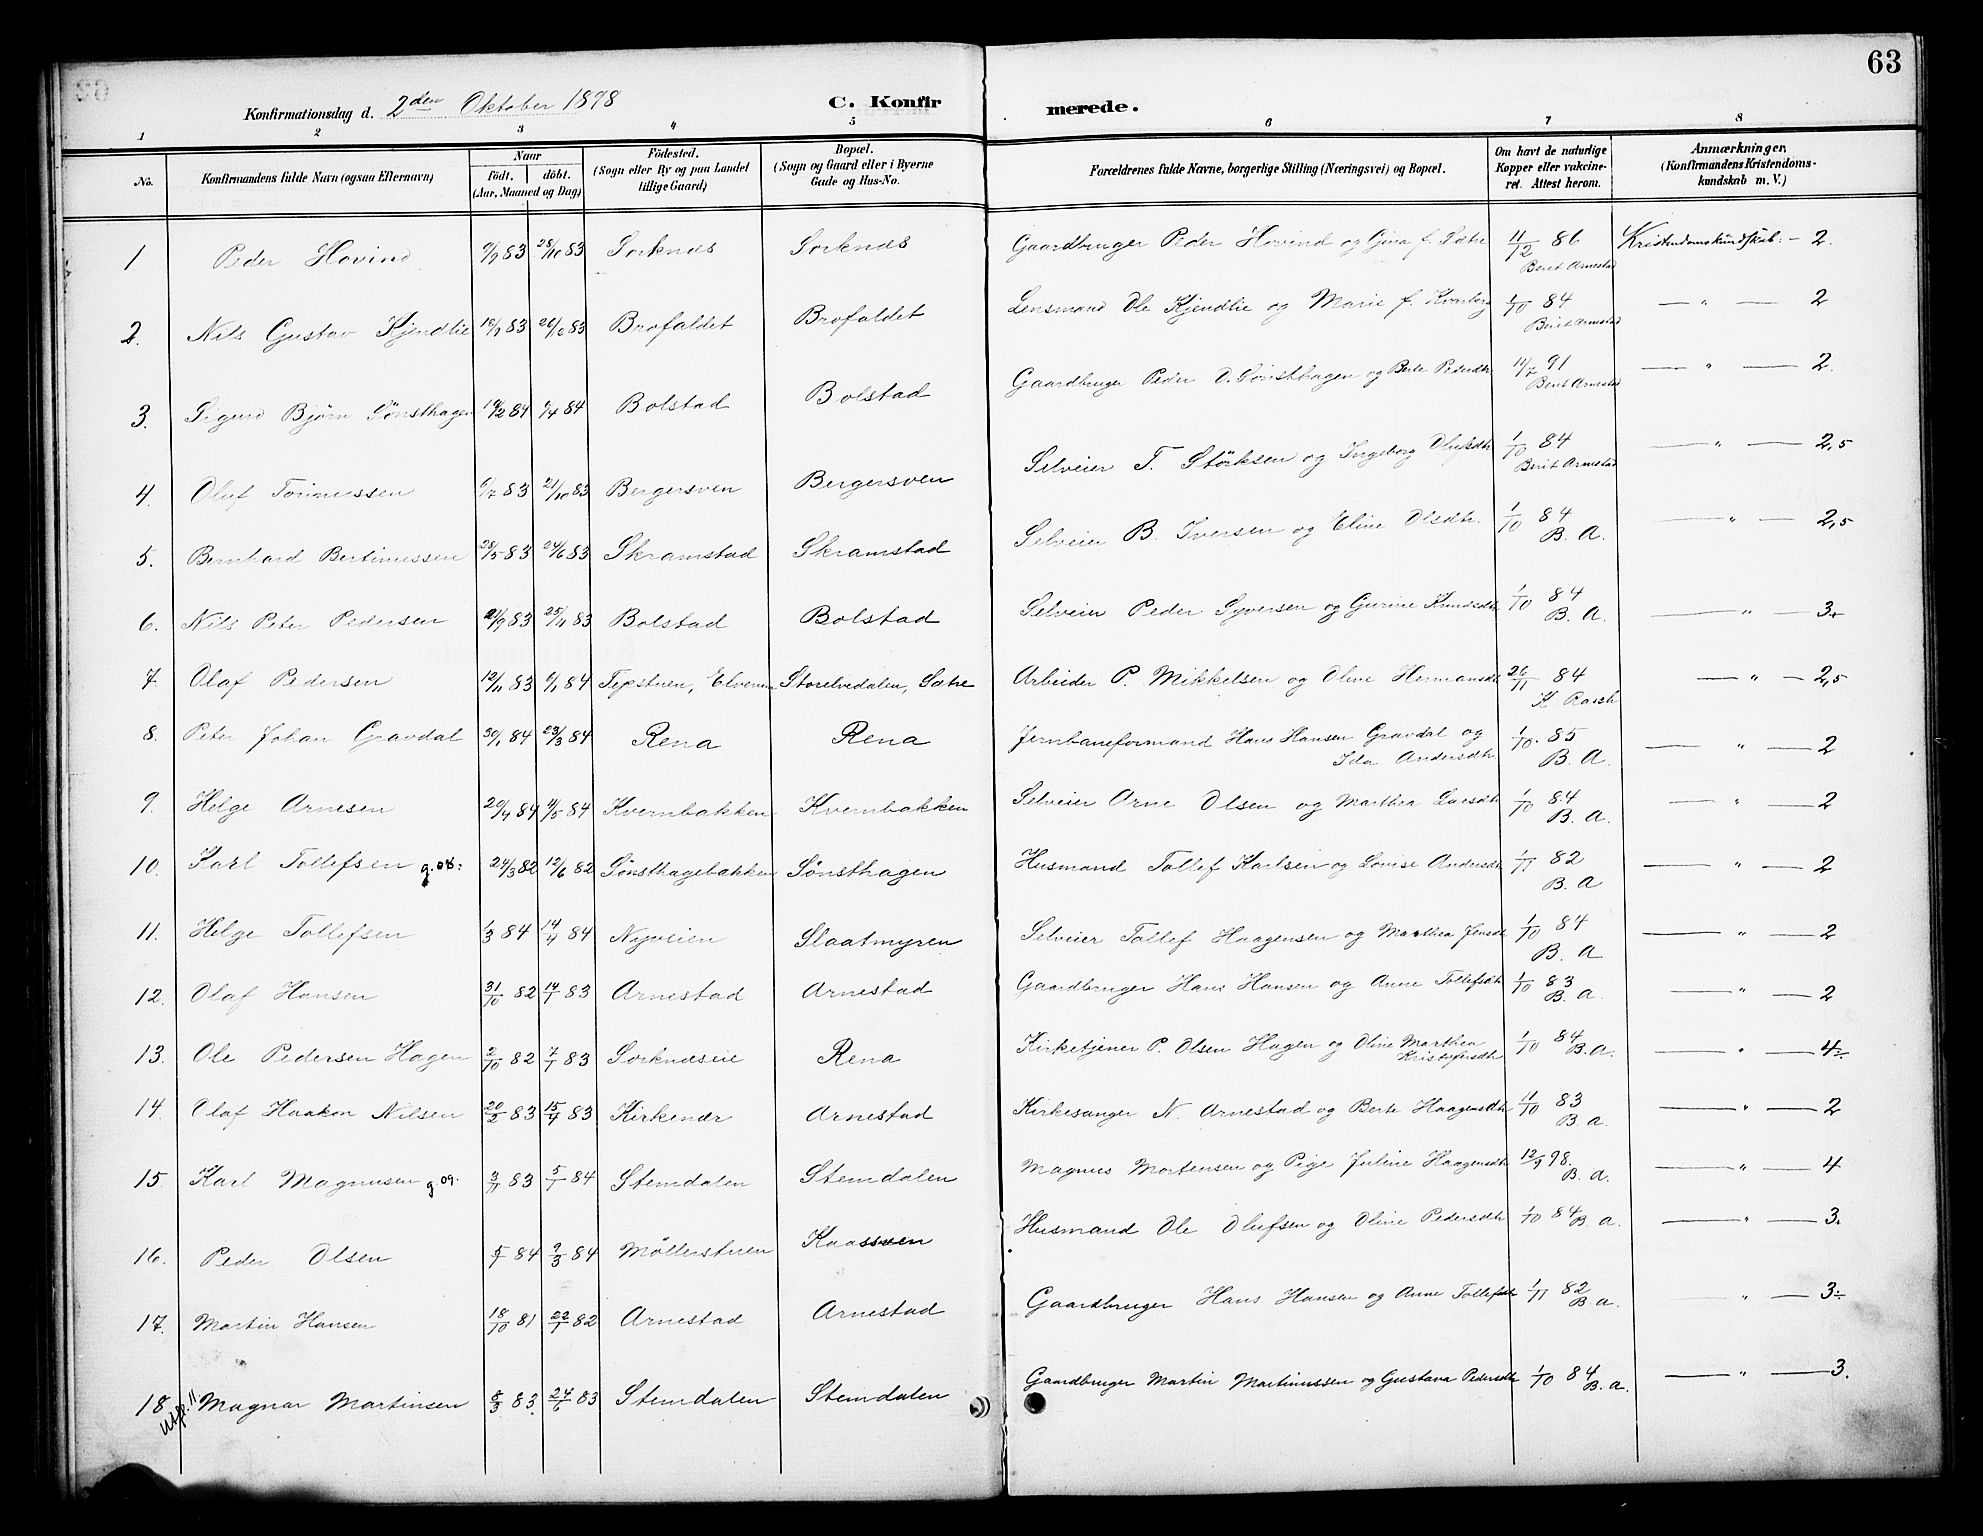 63
Konfirmationsdag d. 2den Oktober 1898
C. Konfirmerede.
1 2 3 4 5 6 7 8
No.
Konfirmandens fulde Navn (ogsaa Efternavn)
Naar
født. døbt.
(Aar, Maaned og Dag)
Fødested.
(Sogn eller By og paa Landet
tillige Gaard)
Bopæl.
(Sogn og Gaard eller i Byerne
Gade og Hus-No.
Forældrenes fulde Navne, borgerlige Stilling (Næringsvei) og Bopæl.
Om havt de naturlige
Kopper eller vakcine-
ret. Attest herom.
Anmærkninger.
(Konfirmandens Kristendoms-
kundskab m. V.)
1 Peder Hovind 9/9 83 28/10 83 Sorknæs Sorknæs Gaardbruger Peder Hovind og Gina f. Sætre 11/12 86 Berit Arnestad Kristendomskundskab. — 2.
2. Nils Gustav Kjendlie 83 83 Brofaldet Brofaldet Lensmand Ole Kjendlie og Marie f. Kvarberg 1/10 84 Berit Arnestad — " — 2
3. Sigurd Bjørn Sønsthagen 84 84 Bolstad Bolstad Gaardbruger Peder O. Sønsthagen og Berte Pedersdtr 11/7 91 Berit Arnestad — " — 2.
4. Oluf Torinussen 83 21/10 83 Bergersven Bergersven Selveier T. Størksen og Ingeborg Olufsdtr 1/10 84 Berit Arnestad — " — 2,5
5. Bernhard Bertinussen 28/5 83 24/6 83 Skramstad Skramstad Selveier B. Iversen og Eline Olsdtr. 1/10 84 B. A. — " — 2,5
6. Nils Peter Pedersen 21/9 83 25/11 83 Bolstad Bolstad Selveier Peder Syversen og Gurine Knudsdtr 1/10 84 B. A. — " — 3÷
7. Olaf Pedersen 12/11 83 6/1 84 Tepstuen, Elverum Storelvedalen, Sætre Arbeider P. Mikkelsen og Oline Hermansdtr 26/11 84 K. Rasch — " — 2,5
8. Peter Johan Gravdal 30/1 84 23/3 84 Rena Rena Jernbaneformand Hans Hansen Gravdal og Ida Andersdtr 1/10. 85 B. A. — " — 2
9. Helge Arnesen 20/4 84 /5 84 Kvernbakken Kvernbakken Selveier Arne Olsen og Marthea Larsdtr 1/10 84 B. A. — " — 2
10. Karl Tollefsen g. 08. 24/3 82 12/6 82 Sønsthagebakken Sønsthagen Husmand Tollef Karlsen og Lovise Andersdtr 1/11 82 B. A — " — 2
11. Helge Tollefsen 1/3 84 14/4 84 Nyveien Slaatmyren Selveier Tollef Haagensen og Marthea Jensdtr 1/10 84 B. A — " — 2
12. Olaf Hansen 31/10 82 14/1 83 Arnestad Arnestad Gaardbruger Hans Hansen og Anne Tollefsdtr 1/10 83 B. A. — " — 2
13. Ole Pedersen Hagen 2/10 82 7/1 83 Sorknæseie Rena Kirketjener P. Olsen Hagen og Oline Marthea Kristofersdtr 1/10 84 B. A. — " — 4÷
14. Olaf Haakon Nilsen 20/2 83 15/4 83 Kirkenær Arnestad Kirkesanger N. Arnestad og Berte Haagensdtr 11/10 83 B. A. — " — 2
15 Karl Magnusen g 09. 3/11 83 5/1 84 Stemdalen Stemdalen Magnus Mortensen og Pige Juline Haagensdtr 12/9 98. B. A. — " — 4
16. Peder Olsen 5/1 84 9/3 84 Møllerstuen Kaassven Husmand Ole Olufsen og Oline Pedersdtr 1/10 84 B. A. — " — 3.
17. Martin Hansen 18/10 81 22/1 82 Arnestad Arnestad Gaardbruger Hans Hansen og Anne Tollefsdtr 1/11 82 B. A. — " — 3÷
18. Magnar Martinsen 8/3 83. 24/6 83 Stemdalen Stemdalen Gaardbruger Martin Martinussen og Gustava Pedersdtr 1/10 84 B. A. — " — 3.